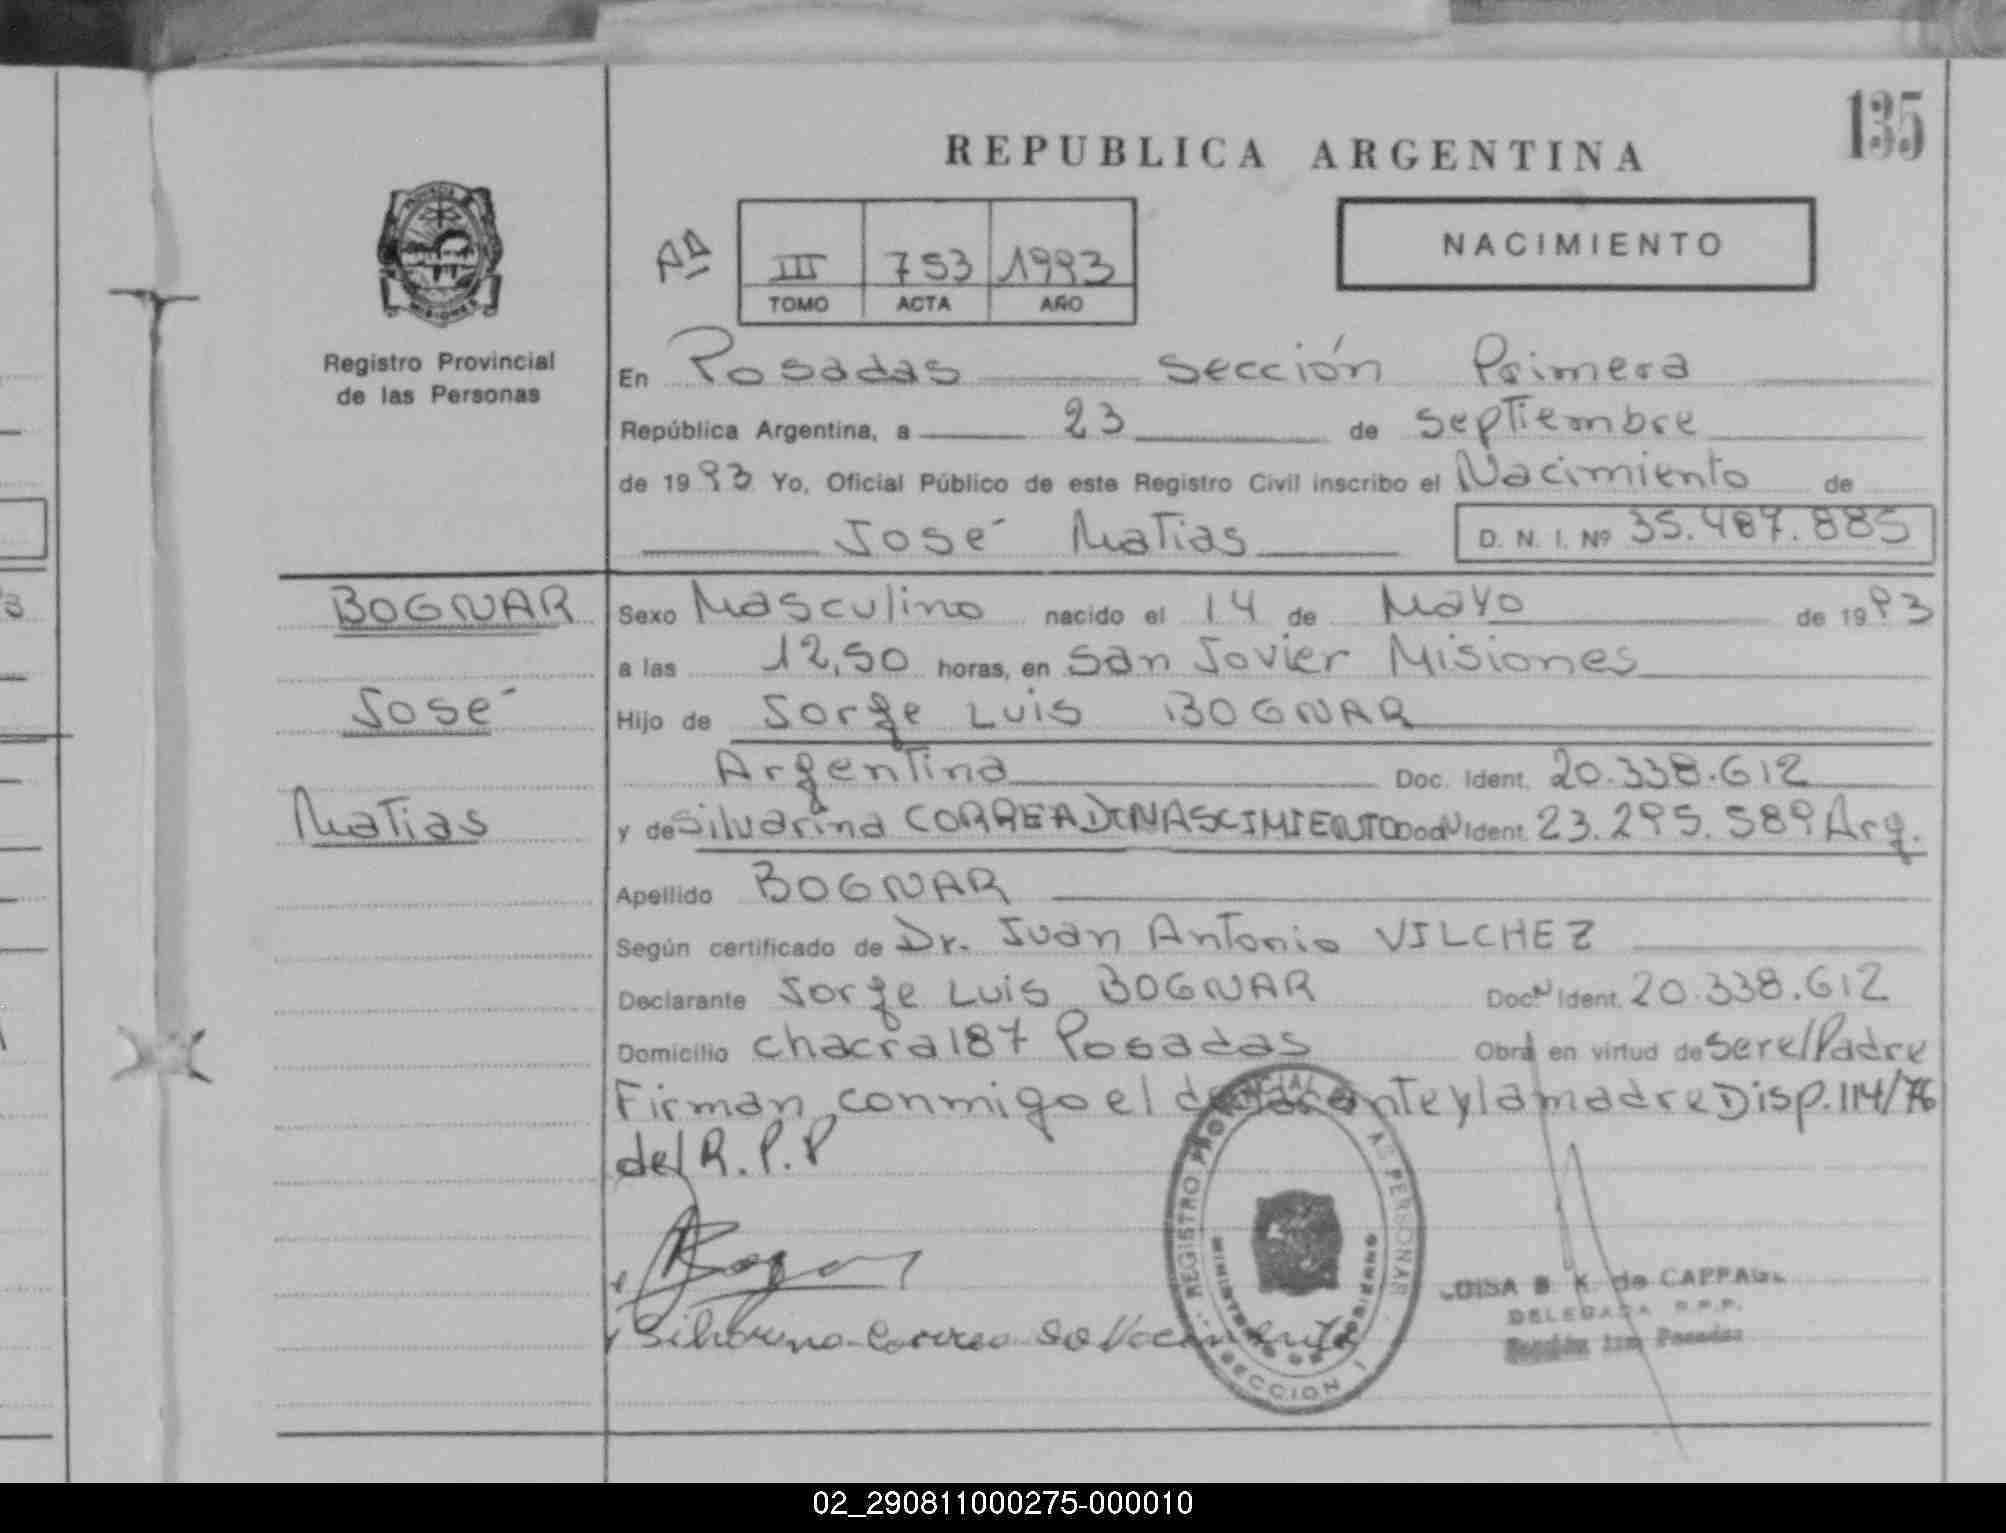 135
REPUBLICA ARGENTINA
NACIMIENTO
III 753 1993
TOMO ACTA AÑO
PROVINCIA
MISIONES
Registro Provincial
de las Personas
En Posadas Sección Primera
República Argentina, a 23 de Septiembre
de 1993 Yo, Oficial Público de este Registro Civil inscribo el Nacimiento de
José Matias D. N. I. Nº 35.487.885
BOGNAR
José
Matias
Sexo Masculino nacido el 14 de Mayo de 1993
a las 12,50 horas, en San Javier Misiones
Hijo de Jorge Luis BOGNAR
Argentina Doc. Ident. 20.338.612
y de Silvarina CORREA DO NASCIMIENTO Doc N Ident. 23.295.589 Arg.
Apellido BOGNAR
Según certificado de Dr. Juan Antonio VILCHEZ
Declarante Jorge Luis BOGNAR Doc. N Ident. 20.338.612
Domicilio chacra 187 Posadas Obra en virtud de Ser el Padre
Firman conmigo el declarante y la madre Disp. 114/76
del R.P.P
REGISTRO PROVINCIAL DE LAS PERSONAS
SECCION 1
LUISA B. K. de
DELEGADA R.P.P.
Sección 1ra Posadas
02_290811000275-000010